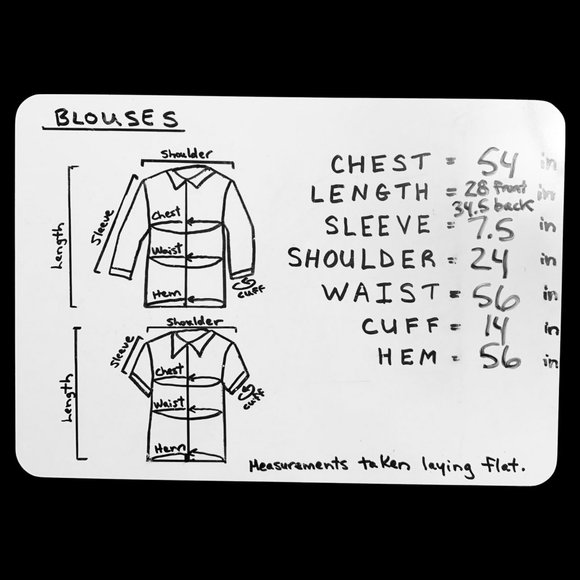 BLOUSES
Shoulder
Sleeve
Length
Chest
Waist
Hem
cuff
Shoulder
Sleeve
Length
Chest
Waist
Hem
cuff
CHEST = 54 in
LENGTH = 28 front in
34.5 back
SLEEVE = 7.5 in
SHOULDER = 24 in
WAIST = 56 in
CUFF = 14 in
HEM = 56 in
Measurements taken laying flat.